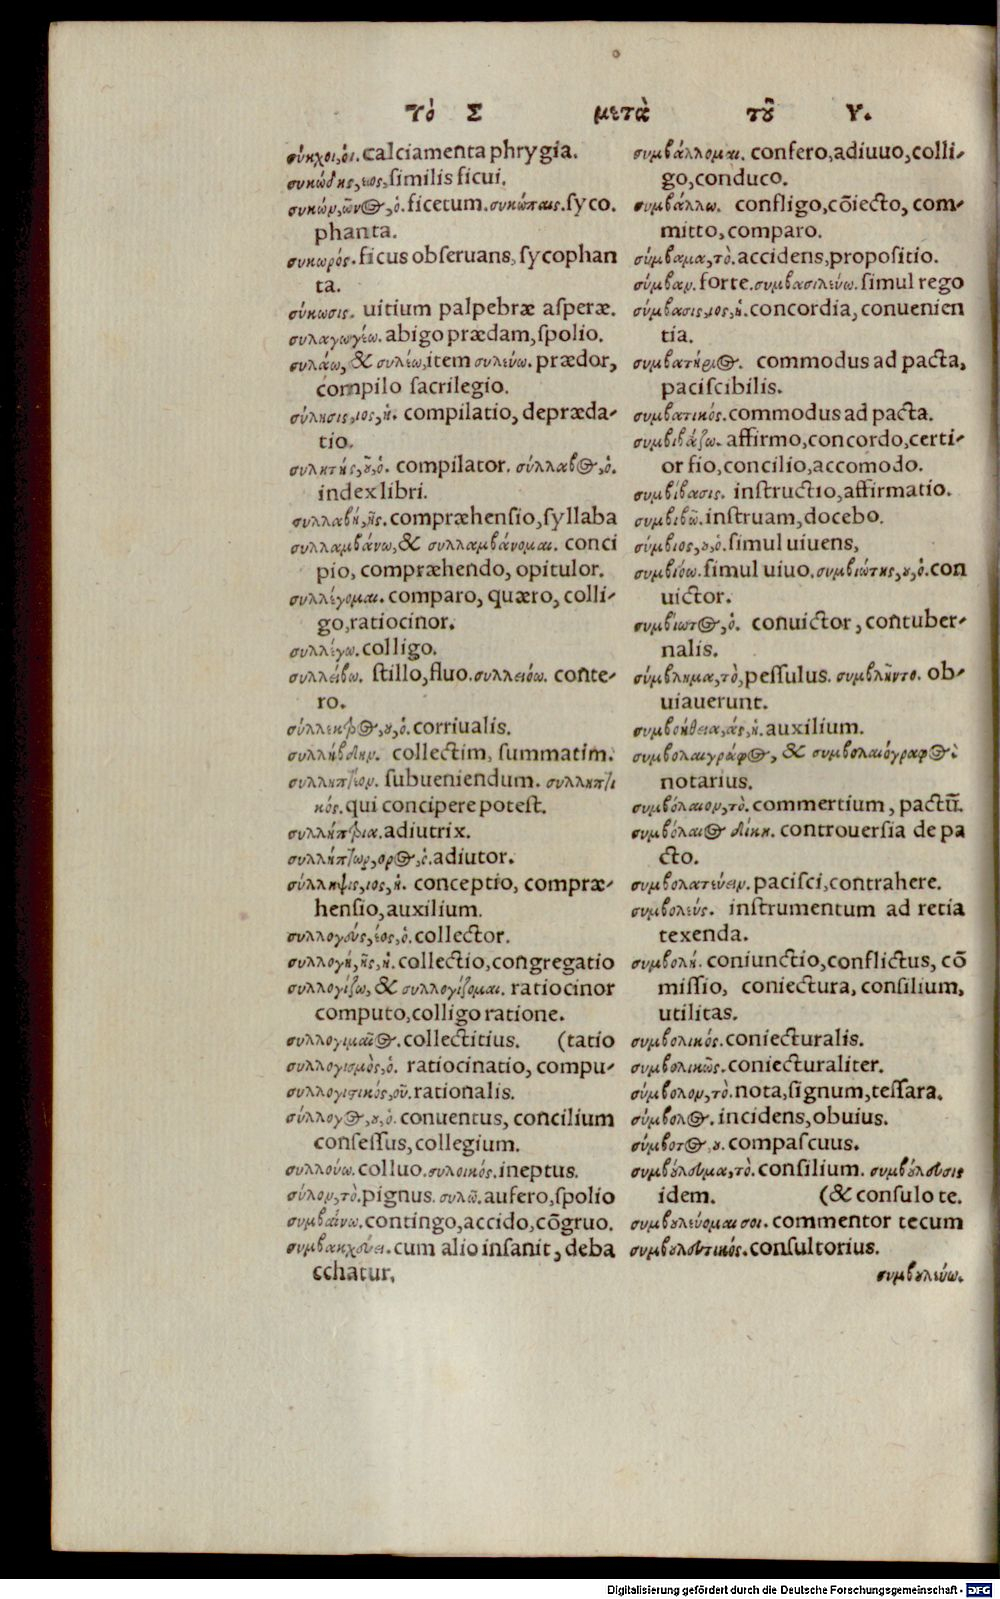 Τὸ Σ μετὰ τοῦ Υ.
σύκχοι,οἱ. calciamenta phrygia.
συκώδης,εος, similis ficui.
συκών,ῶνος,ὁ. ficetum. συκώπαις. syco.
phanta.
συκωρός. ficus obseruans, sycophan
ta.
σύκωσις. uitium palpebræ asperæ.
συλαγωγέω. abigo prædam, spolio.
συλάω, & συλέω, item συλεύω. prædor,
compilo sacrilegio.
σύλησις,ιος,ἡ. compilatio, depræda-
tio.
συλητής,οῦ,ὁ. compilator. σύλλαβος,ὁ.
index libri.
συλλαβή,ῆς. compræhensio, syllaba
συλλαμβάνω, & συλλαμβάνομαι. conci
pio, compræhendo, opitulor.
συλλέγομαι. comparo, quæro, colli-
go, ratiocinor.
συλλέγω. colligo.
συλλείβω. stillo, fluo. συλλειόω. conte-
ro.
σύλλεκτρος,ου,ὁ. corriualis.
συλλήβδην. collectim, summatim.
συλληπτέον. subueniendum. συλληπτι
κός. qui concipere potest.
συλλήπτρια. adiutrix.
συλλήπτωρ,ορος,ὁ. adiutor.
σύλληψις,ιος,ἡ. conceptio, compræ-
hensio, auxilium.
συλλογεύς,έος,ὁ. collector.
συλλογή,ῆς,ἡ. collectio, congregatio
συλλογίζω, & συλλογίζομαι. ratiocinor
computo, colligo ratione.
συλλογιμαῖος. collectitius. (tatio
συλλογισμὸς,ὁ. ratiocinatio, compu-
συλλογιστικός,οῦ. rationalis.
σύλλογος,ου,ὁ. conuentus, concilium
consessus, collegium.
συλλούω. colluo. συλοικός. ineptus.
σύλον,τὸ. pignus. συλῶ. aufero, spolio
συμβαίνω. contingo, accido, cõgruo.
συμβακχεύει. cum alio insanit, deba
cchatur.
συμβάλλομαι. confero, adiuuo, colli-
go, conduco.
συμβάλλω. confligo, cõiecto, com-
mitto, comparo.
σύμβαμα,τὸ. accidens, propositio.
σύμβαν. forte. συμβασιλεύω. simul rego
σύμβασις,ιος,ἡ. concordia, conuenien
tia.
συμβατήριος. commodus ad pacta,
paciscibilis.
συμβατικός. commodus ad pacta.
συμβιβάζω. affirmo, concordo, certi-
or fio, concilio, accomodo.
συμβίβασις. instructio, affirmatio.
συμβιβῶ. instruam, docebo.
σύμβιος,ου,ὁ. simul uiuens,
συμβιόω. simul uiuo. συμβιώτης,ου,ὁ. con
uictor.
συμβίωτος,ὁ. conuictor, contuber-
nalis.
σύμβλημα,τὸ, pessulus. συμβλῆντο. ob-
uiauerunt.
συμβοήθεια,ας,ἡ. auxilium.
συμβολαιγράφος, & συμβολαιόγραφος.
notarius.
συμβόλαιον,τὸ. commertium, pactũ.
συμβόλαιος δίκη. controuersia de pa
cto.
συμβολατεύειν. pacisci, contrahere.
συμβολεύς. instrumentum ad retia
texenda.
συμβολή. coniunctio, conflictus, cõ
missio, coniectura, consilium,
utilitas.
συμβολικός. coniecturalis.
συμβολικῶς. coniecturaliter.
σύμβολον,τὸ. nota, signum, tessara.
σύμβολος. incidens, obuius.
σύμβοτος,ου. compascuus.
συμβούλευμα,τὸ. consilium. συμβούλευσις
idem. (& consulo te.
συμβουλεύομαι σοι. commentor tecum
συμβουλευτικός. consultorius.
συμβουλεύω.
Digitalisierung gefördert durch die Deutsche Forschungsgemeinschaft - DFG